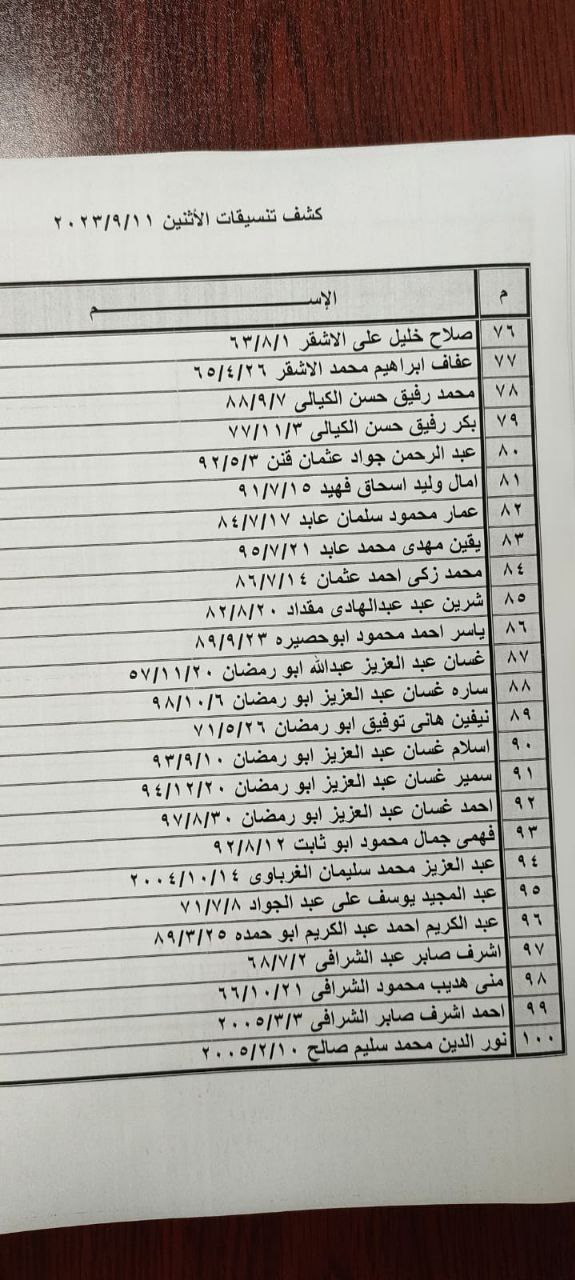 كشف تنسيقات الأثنين ٢٠٢٣/٩/١١
م الإســـــــــم
٧٦ صلاح خليل على الاشقر ٦٣/٨/١
٧٧ عفاف ابراهيم محمد الاشقر ٦٥/٤/٢٦
٧٨ محمد رفيق حسن الكيالى ٨٨/٩/٧
٧٩ بكر رفيق حسن الكيالى ٧٧/١١/٣
٨٠ عبد الرحمن جواد عثمان قنن ٩٢/٥/٣
٨١ امال وليد اسحاق فهيد ٩١/٧/١٥
٨٢ عمار محمود سلمان عابد ٨٤/٧/١٧
٨٣ يقين مهدى محمد عابد ٩٥/٧/٢١
٨٤ محمد زكى احمد عثمان ٨٦/٧/١٤
٨٥ شرين عبد عبدالهادى مقداد ٨٢/٨/٢٠
٨٦ ياسر احمد محمود ابوحصيره ٨٩/٩/٢٣
٨٧ غسان عبد العزيز عبدالله ابو رمضان ٥٧/١١/٢٠
٨٨ ساره غسان عبد العزيز ابو رمضان ٩٨/١٠/٦
٨٩ نيفين هانى توفيق ابو رمضان ٧١/٥/٢٦
٩٠ اسلام غسان عبد العزيز ابو رمضان ٩٣/٩/١٠
٩١ سمير غسان عبد العزيز ابو رمضان ٩٤/١٢/٢٠
٩٢ احمد غسان عبد العزيز ابو رمضان ٩٧/٨/٣٠
٩٣ فهمى جمال محمود ابو ثابت ٩٢/٨/١٢
٩٤ عبد العزيز محمد سليمان الغرباوى ٢٠٠٤/١٠/١٤
٩٥ عبد المجيد يوسف على عبد الجواد ٧١/٧/٨
٩٦ عبد الكريم احمد عبد الكريم ابو حمده ٨٩/٣/٢٥
٩٧ اشرف صابر عبد الشرافى ٦٨/٧/٢
٩٨ منى هديب محمود الشرافى ٦٦/١٠/٢١
٩٩ احمد اشرف صابر الشرافى ٢٠٠٥/٣/٣
١٠٠ نور الدين محمد سليم صالح ٢٠٠٥/٢/١٠